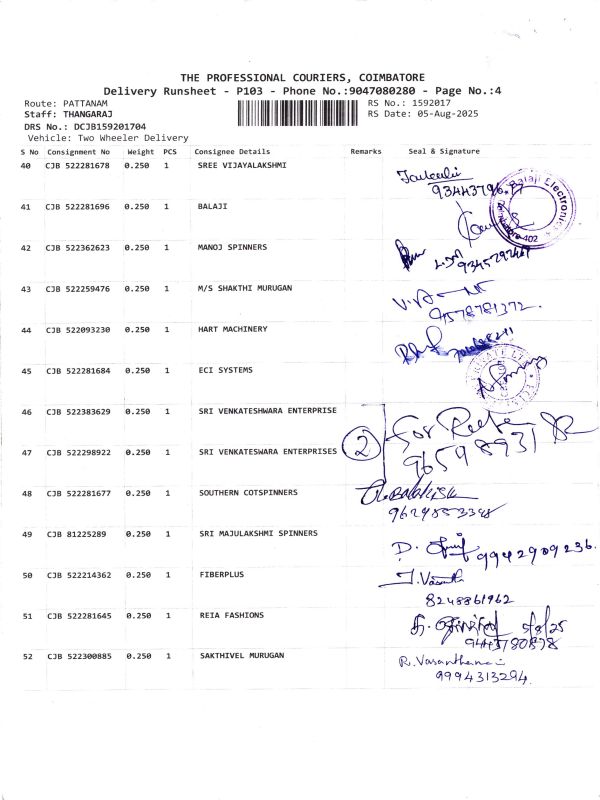 THE PROFESSIONAL COURIERS, COIMBATORE
Delivery Runsheet - P103 - Phone No.:9047080280 - Page No.:4
Route: PATTANAM RS No.: 1592017
Staff: THANGARAJ RS Date: 05-Aug-2025
DRS No.: DCJB159201704
Vehicle: Two Wheeler Delivery
S No Consignment No Weight PCS Consignee Details Remarks Seal & Signature
40 CJB 522281678 0.250 1 SREE VIJAYALAKSHMI
Balaji Electronics
41 CJB 522281696 0.250 1 BALAJI
42 CJB 522362623 0.250 1 MANOJ SPINNERS
43 CJB 522259476 0.250 1 M/S SHAKTHI MURUGAN
9578781372.
44 CJB 522093230 0.250 1 HART MACHINERY
45 CJB 522281684 0.250 1 ECI SYSTEMS
46 CJB 522383629 0.250 1 SRI VENKATESHWARA ENTERPRISE
2 For
47 CJB 522298922 0.250 1 SRI VENKATESWARA ENTERPRISES
48 CJB 522281677 0.250 1 SOUTHERN COTSPINNERS
49 CJB 81225289 0.250 1 SRI MAJULAKSHMI SPINNERS
D. 9942909236.
50 CJB 522214362 0.250 1 FIBERPLUS
J. Vasanth
8248861962
51 CJB 522281645 0.250 1 REIA FASHIONS
5/8/25
52 CJB 522300885 0.250 1 SAKTHIVEL MURUGAN
9994313294.